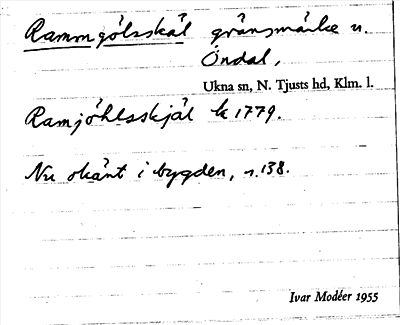 Rammgölsskäl gränsmärke u.
Öndal,
Ukna sn, N. Tjusts hd, Klm. l.
Ramjöhlsskjäl k 1779.
Nu okänt i bygden, s. 138.
Ivar Modéer 1955